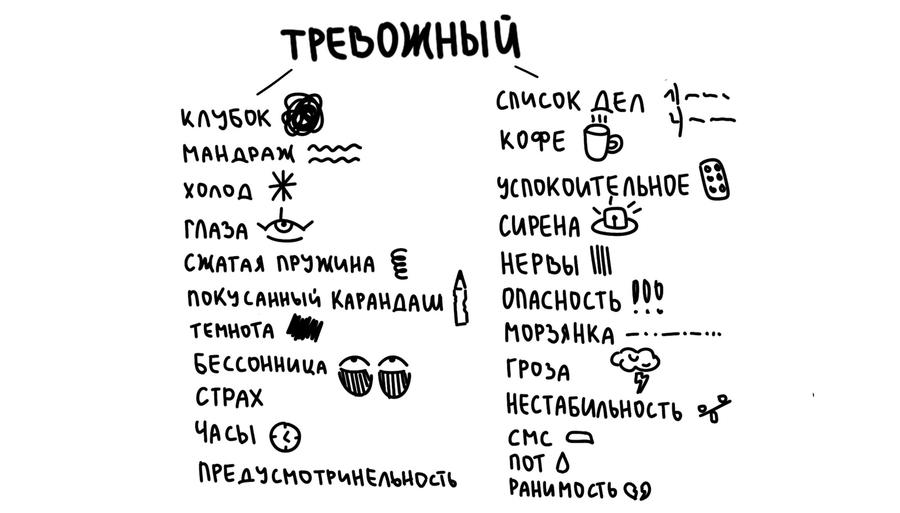 ТРЕВОЖНЫЙ
КЛУБОК
МАНДРАЖ
ХОЛОД
ГЛАЗА
СЖАТАЯ ПРУЖИНА
ПОКУСАННЫЙ КАРАНДАШ
ТЕМНОТА
БЕССОННИЦА
СТРАХ
ЧАСЫ
ПРЕДУСМОТРИНЕЛЬНОСТЬ
СПИСОК ДЕЛ
КОФЕ
УСПОКОИТЕЛЬНОЕ
СИРЕНА
НЕРВЫ
ОПАСНОСТЬ !!!
МОРЗЯНКА
ГРОЗА
НЕСТАБИЛЬНОСТЬ
СМС
ПОТ
РАНИМОСТЬ